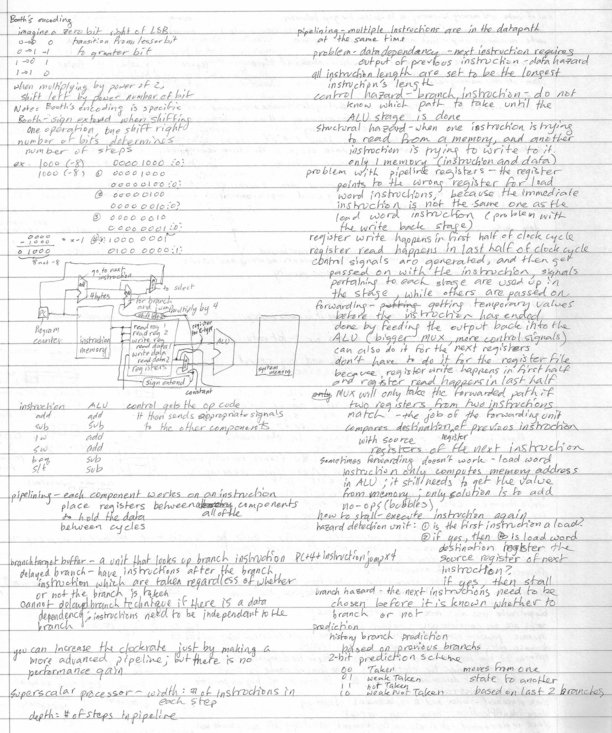 Booth's encoding
imagine a zero bit right of LSB
0→0 0 transition from lesser bit
0→1 -1 to greater bit
1→0 1
1→1 0
when multiplying by power of 2,
shift left by power number of bit
Note: Booth's encoding is specific
Booth-sign extend when shifting
one operation, one shift right
number of bits determines
number of steps
ex. 1000 (-8) 0000 1000 :0:
1000 (-8) ① 0000 1000
0000 0100 :0:
② 0000 0100
0000 0010 :0:
③ 0000 0010
0000 0001 :0:
0000
-1000 = x-1 ④ 1000 0001
01000 0100 0000 :1:
8 not -8
go to next
instruction
4 bytes
to select
for branch
multiply by 4
Program
counter
instruction
memory
read reg 1
read reg 2
write reg
write data
read data 1
read data 2
registers
register
ALU
system
memory
sign extend
constant
instruction ALU control gets the op code
add add it then sends appropriate signals
sub sub to the other components
lw add
sw add
beq sub
slt sub
pipelining - each component works on an instruction
place registers between all of the components
to hold the data
between cycles
branch target buffer - a unit that looks up branch instruction PC+4+instruction jump x4
delayed branch - have instructions after the branch,
instruction which are taken regardless of whether
or not the branch is taken
cannot delayed branch technique if there is a data
dependency; instructions need to be independent to the
branch
you can increase the clockrate just by making a
more advanced pipeline; but there is no
performance gain
superscalar processor - width: # of instructions in
each step
depth: # of steps in pipeline
pipelining - multiple instructions are in the datapath
at the same time
problem - data dependency - next instruction requires
output of previous instruction - data hazard
all instruction length are set to be the longest
instruction's length
control hazard - branch, instruction - do not
know which path to take until the
ALU stage is done
structural hazard - when one instruction is trying
to read from a memory, and another
instruction is trying to write to it
only 1 memory (instruction and data)
problem with pipeline registers - the register
points to the wrong register for load
word instructions, because the immediate
instruction is not the same one as the
load word instruction (problem with
the write back stage)
register write happens in first half of clock cycle
register read happens in last half of clock cycle
control signals are generated, and then get
passed on with the instruction, signals
pertaining to each stage are used up in
the stage, while others are passed on
forwarding - getting temporary values
before the instruction has ended
done by feeding the output back into the
ALU (bigger MUX, more control signals)
can also do it for the next registers
don't have to do it for the register file
because, register write happens in first half
and register read happens in last half
MUX will only take the forwarded path if
two registers from two instructions
match - the job of the forwarding unit
compares destination of previous instruction
with source register
registers of the next instruction
sometimes forwarding doesn't work - load word
instruction only computes memory address
in ALU; it still needs to get the value
from memory; only solution is to add
no-ops (bubbles)
how to stall - execute instruction again
hazard detection unit: ① is the first instruction a load?
② if yes, then is load word
destination register the
source register of next
instruction?
if yes, then stall
branch hazard - the next instructions need to be
chosen before it is known whether to
branch or not
prediction
history branch prediction
based on previous branchs
2-bit prediction scheme
00 Taken moves from one
01 weak Taken state to another
11 not Taken
10 weak not Taken based on last 2 branches